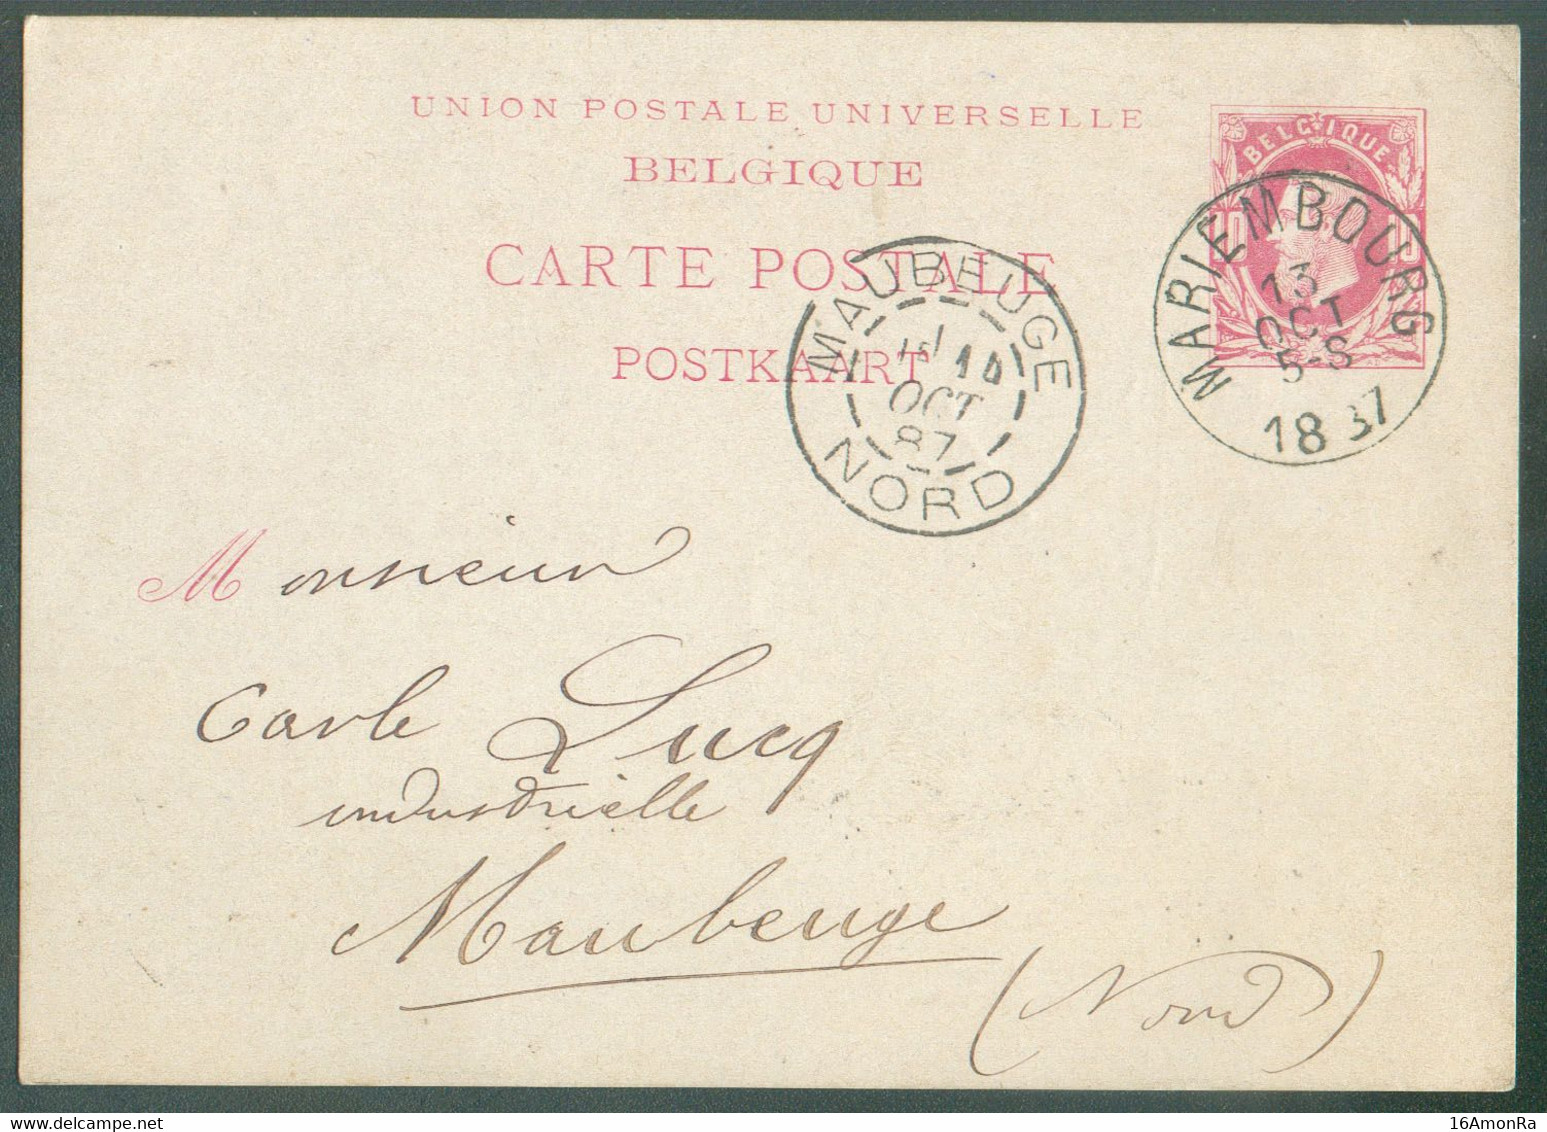 UNION POSTALE UNIVERSELLE
BELGIQUE
CARTE POSTALE
POSTKAART
BELGIQUE
10 10
MARIEMBOURG
13
OCT
5-S
1887
MAUBEUGE
14
OCT
87
NORD
Monsieur
Carle Lucq
industrielle
Maubeuge
(Nord)
16AmonRa